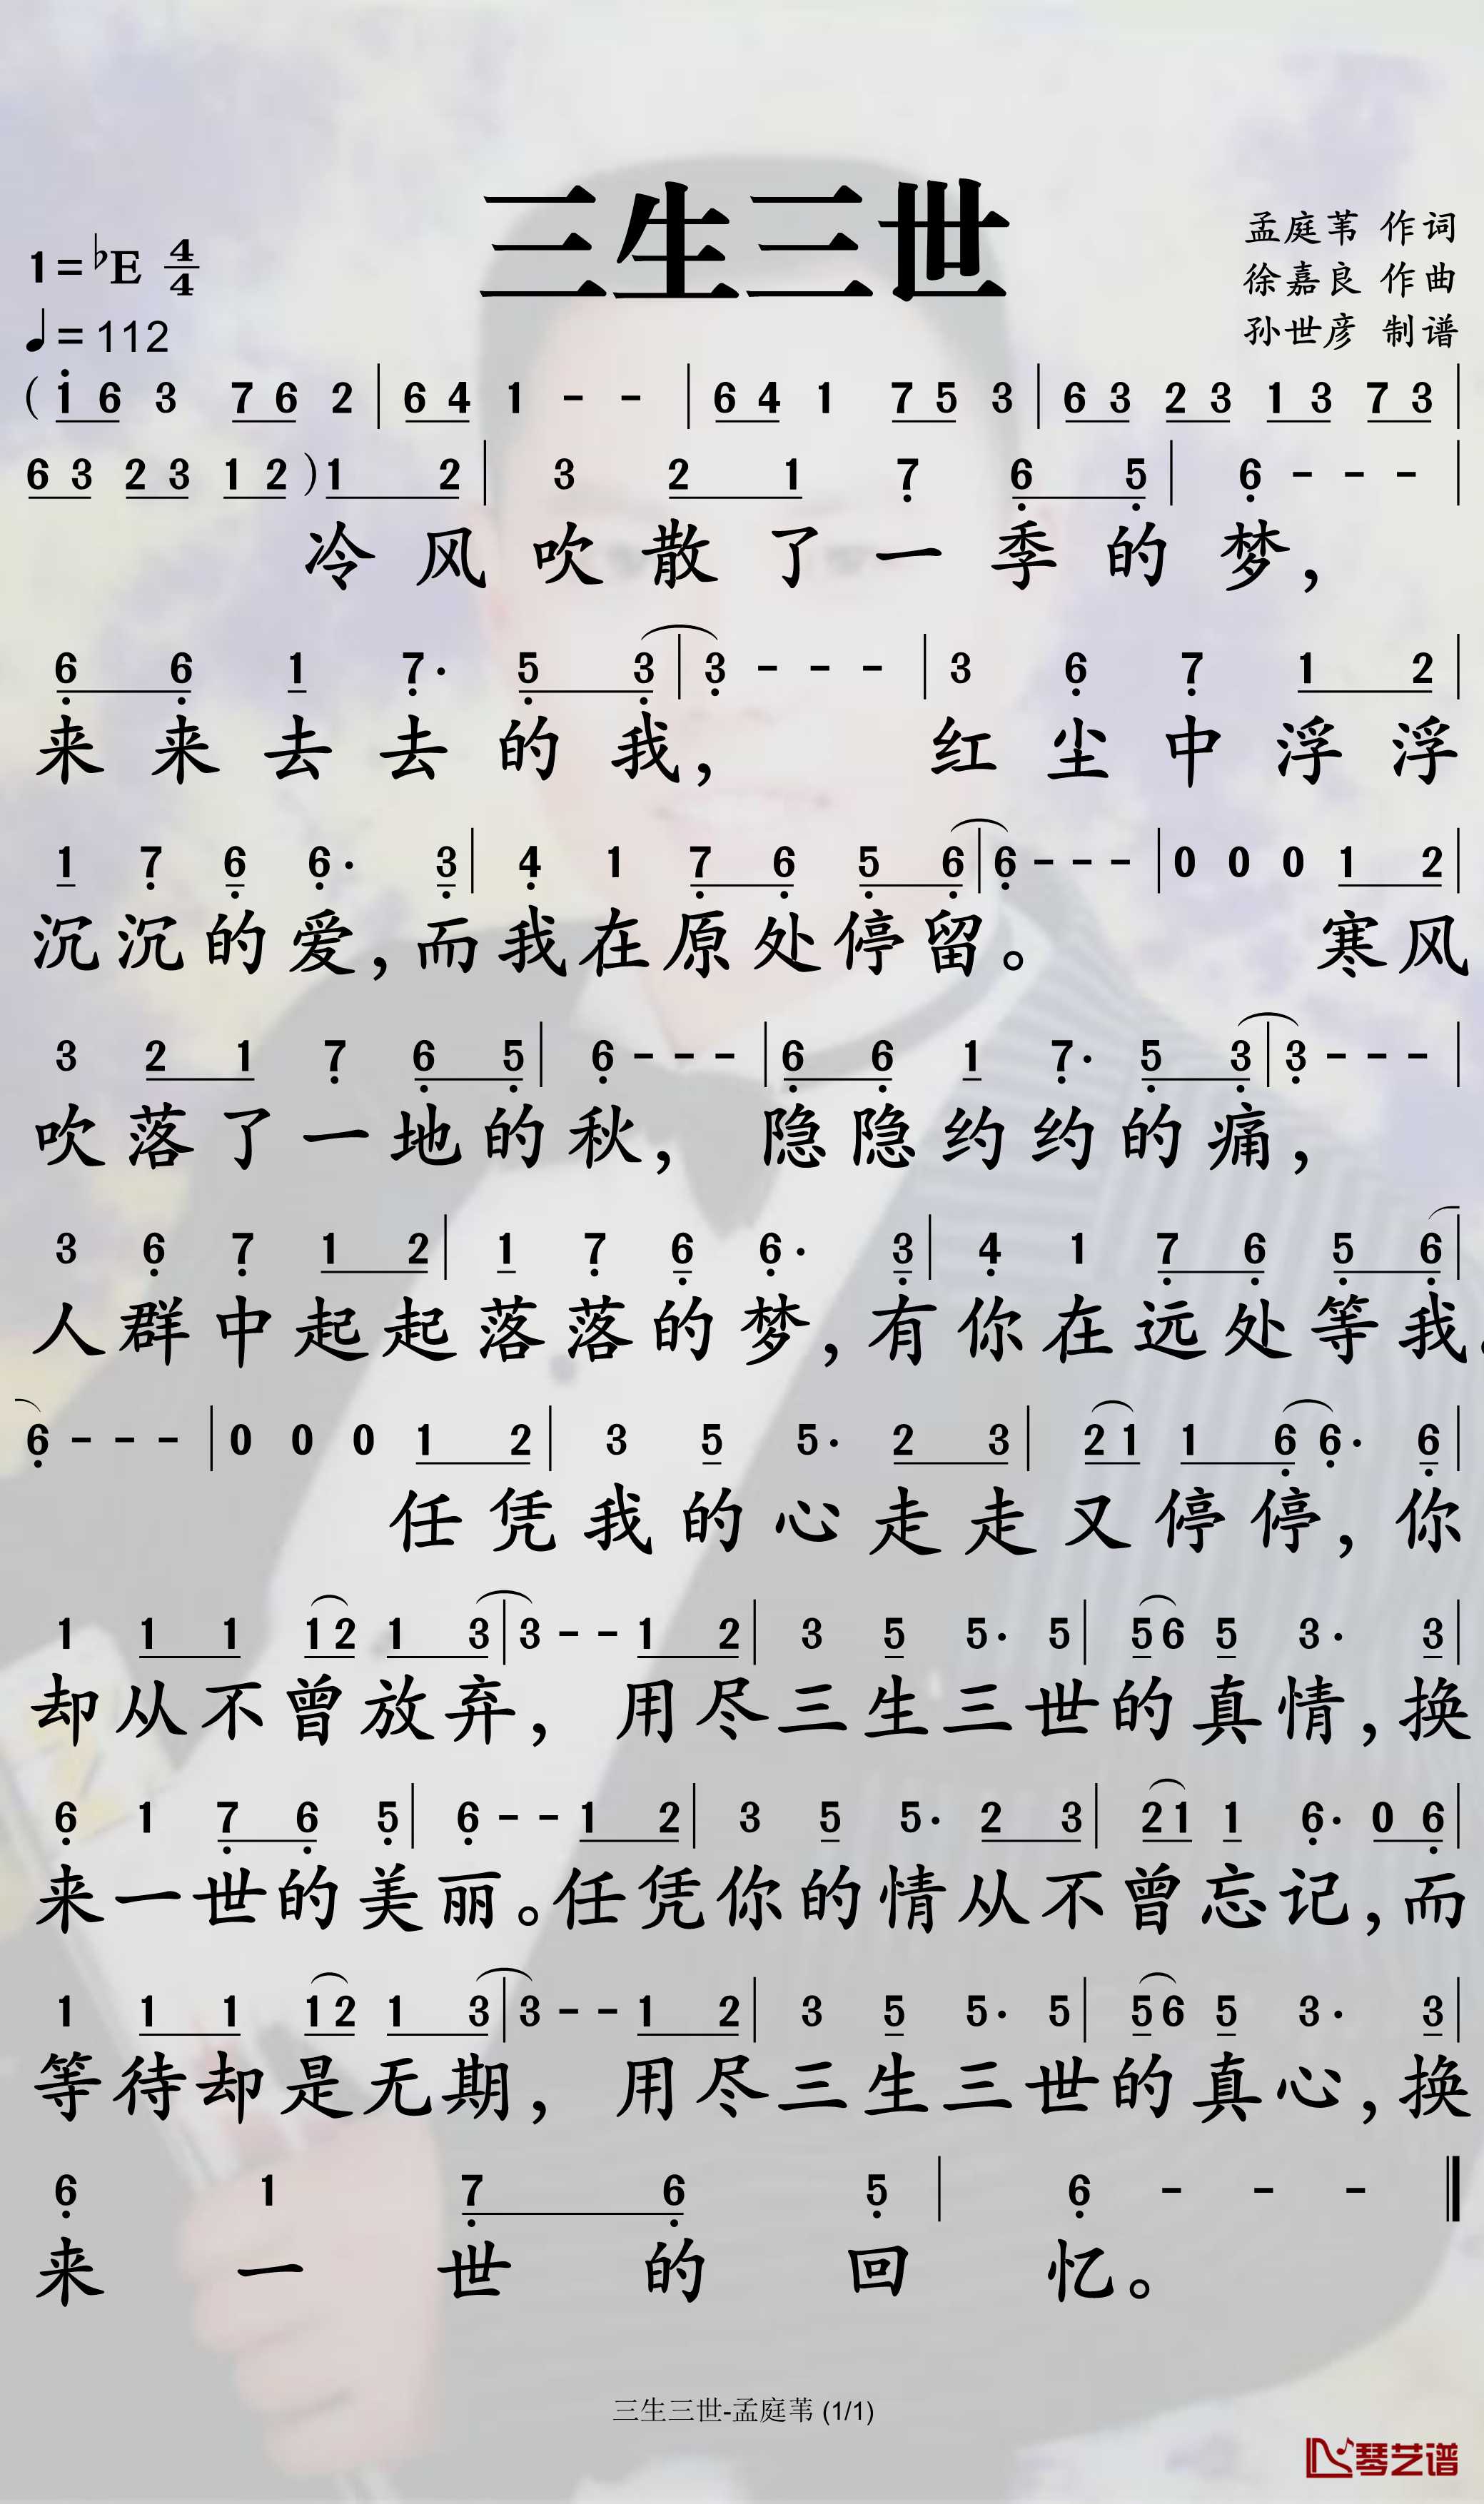 三生三世
1=♭E 4/4
♩=112
孟庭苇 作词
徐嘉良 作曲
孙世彦 制谱
( 1 6 3 7 6 2 | 6 4 1 - - | 6 4 1 7 5 3 | 6 3 2 3 1 3 7 3 |
6 3 2 3 1 2 ) 1 2 | 3 2 1 7 6 5 | 6 - - - |
冷风吹散了一季的梦，
6 6 1 7· 5 3 | 3 - - - | 3 6 7 1 2 |
来来去去的我， 红尘中浮浮
1 7 6 6· 3 | 4 1 7 6 5 6 | 6 - - - | 0 0 0 1 2 |
沉沉的爱，而我在原处停留。 寒风
3 2 1 7 6 5 | 6 - - - | 6 6 1 7· 5 3 | 3 - - - |
吹落了一地的秋， 隐隐约约的痛，
3 6 7 1 2 | 1 7 6 6· 3 | 4 1 7 6 5 6 |
人群中起起落落的梦，有你在远处等我。
6 - - - | 0 0 0 1 2 | 3 5 5· 2 3 | 2 1 1 6 6· 6 |
任凭我的心走走又停停，你
1 1 1 1 2 1 3 | 3 - - 1 2 | 3 5 5· 5 | 5 6 5 3· 3 |
却从不曾放弃， 用尽三生三世的真情，换
6 1 7 6 5 | 6 - - 1 2 | 3 5 5· 2 3 | 2 1 1 6· 0 6 |
来一世的美丽。任凭你的情从不曾忘记，而
1 1 1 1 2 1 3 | 3 - - 1 2 | 3 5 5· 5 | 5 6 5 3· 3 |
等待却是无期， 用尽三生三世的真心，换
6 1 7 6 5 | 6 - - - ‖
来一世的回忆。
三生三世-孟庭苇 (1/1)
琴艺谱